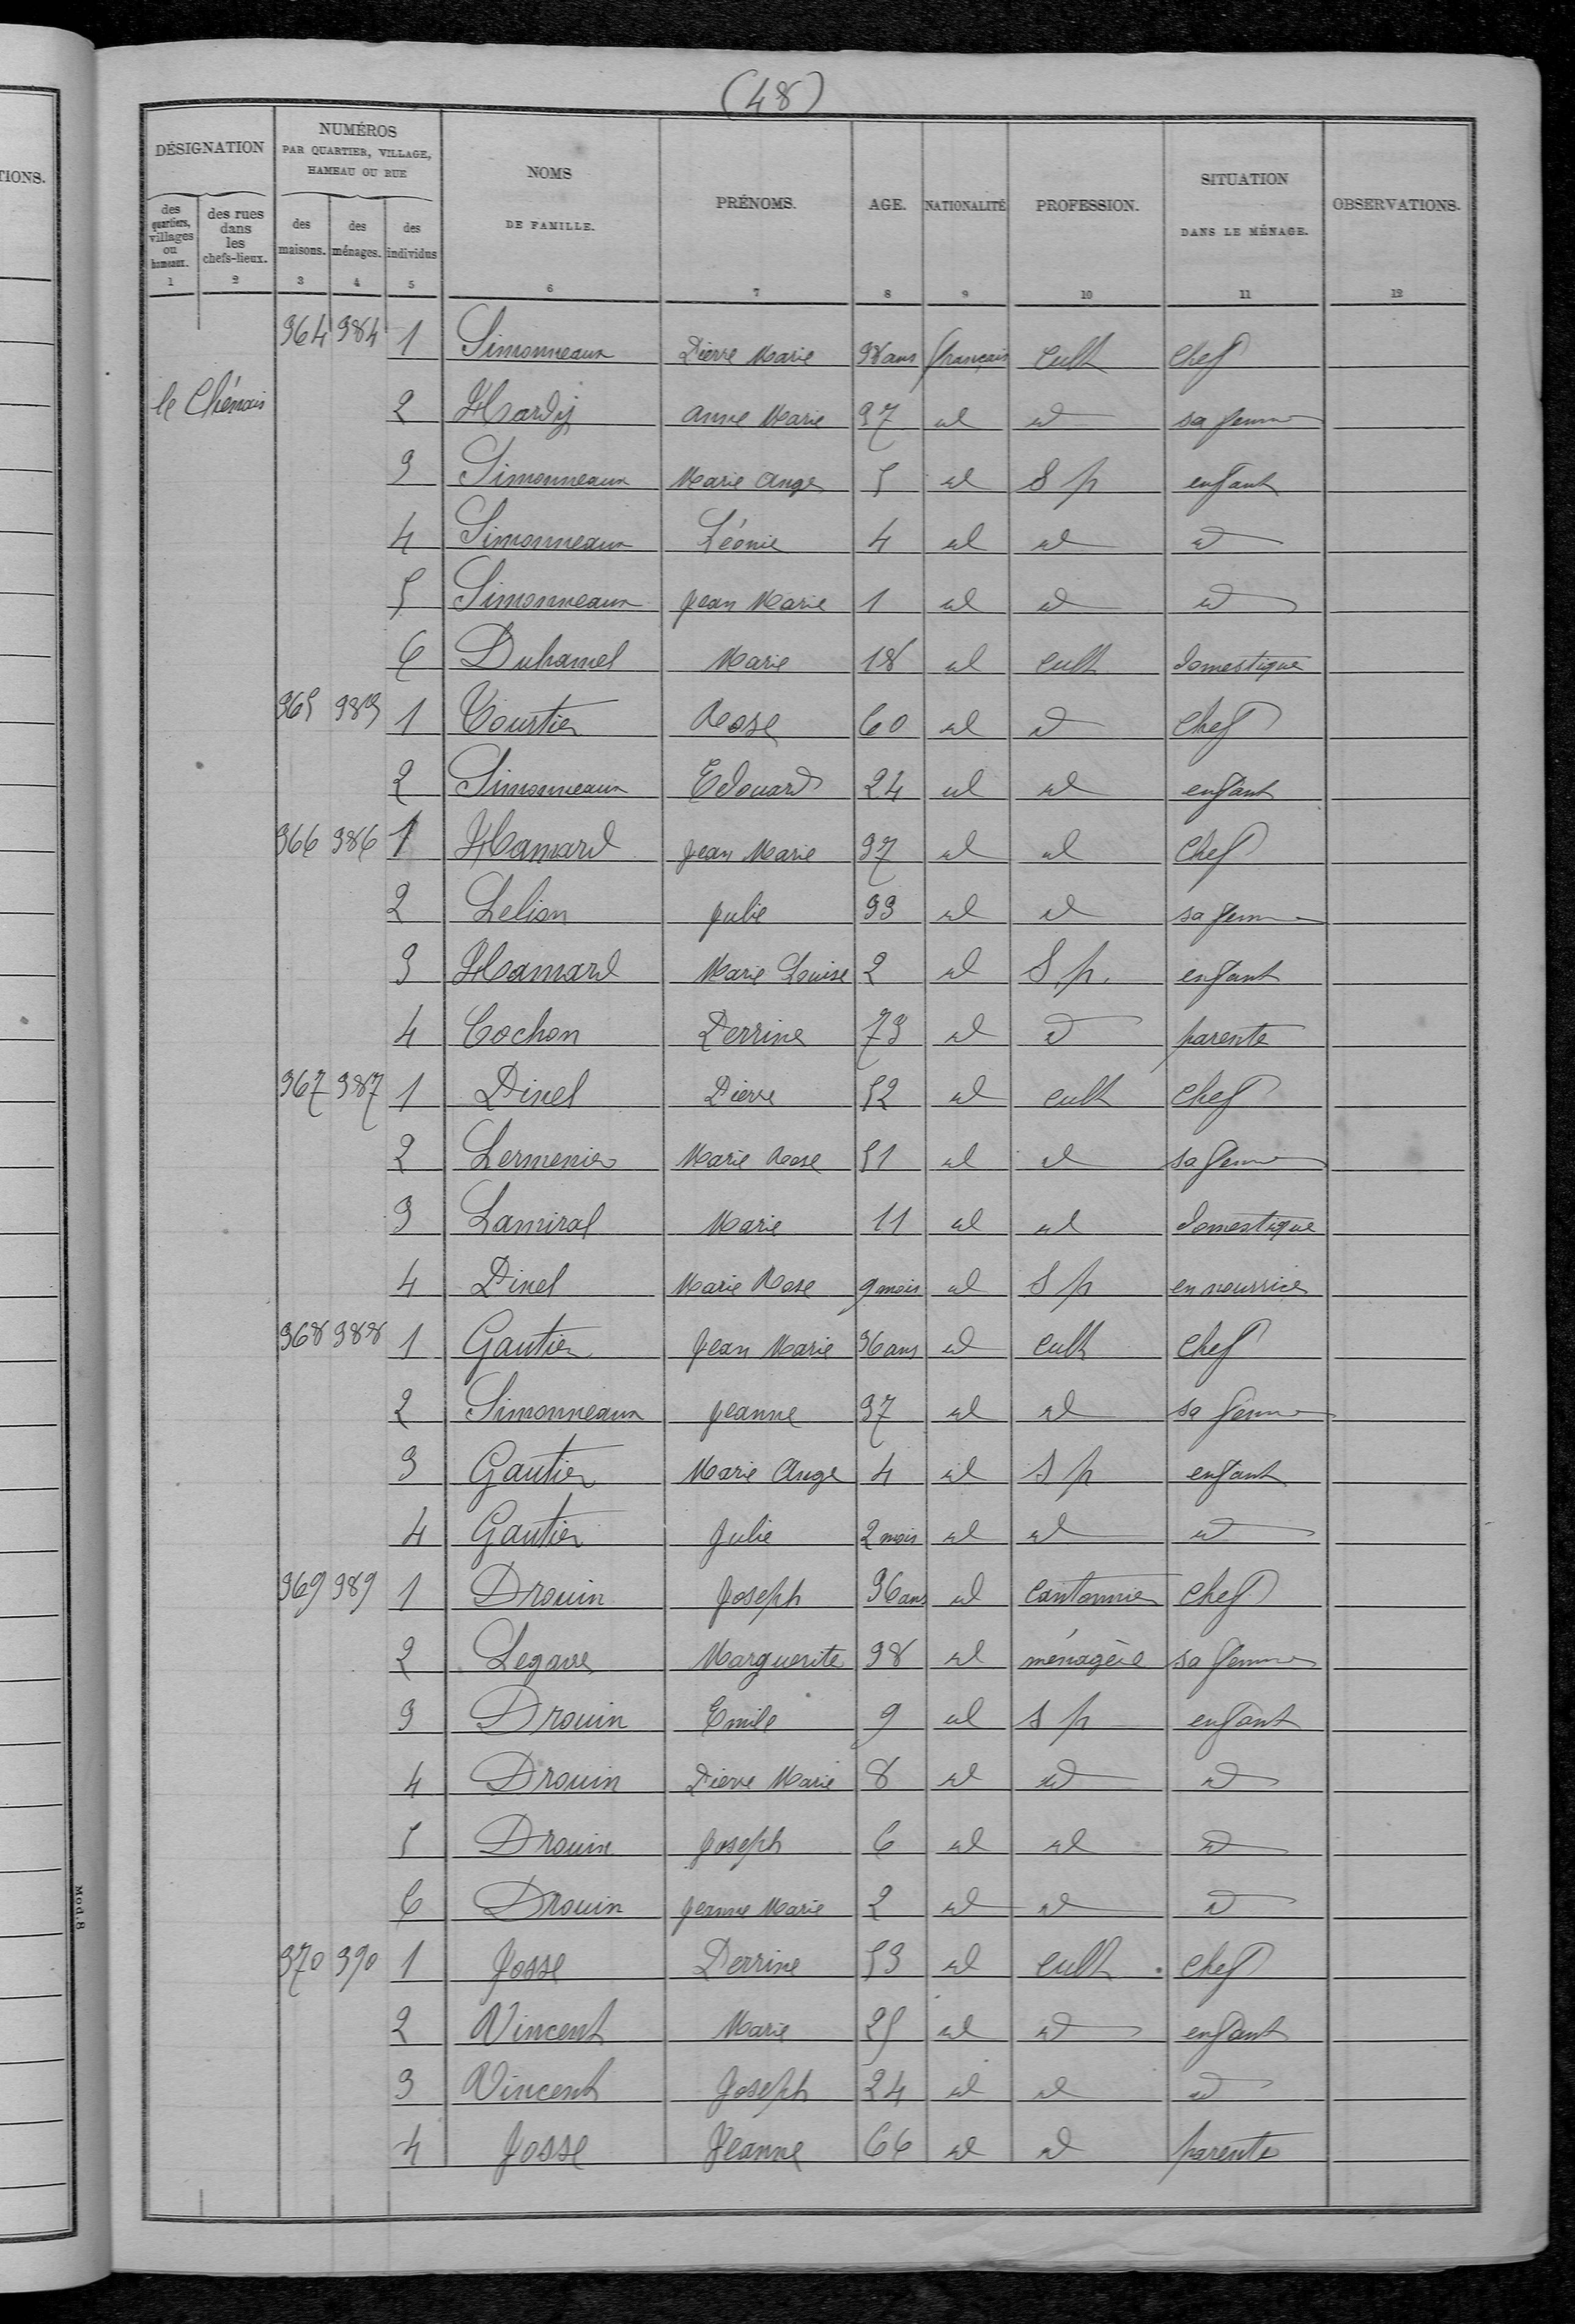 (48)
TIONS.
DÉSIGNATION
NUMÉROS
PAR QUARTIER, VILLAGE,
HAMEAU OU RUE
NOMS
DE FAMILLE.
PRÉNOMS.
AGE.
NATIONALITÉ
PROFESSION.
SITUATION
DANS LE MÉNAGE.
OBSERVATIONS.
des quartiers, villages ou hameaux.
des rues dans les chefs-lieux.
des maisons.
des ménages.
des individus
1 2 3 4 5 6 7 8 9 10 11 12
364 384 1 Simonneaux Pierre Marie 38 ans français cult chef
le Chénais 2 Hardy Anne Marie 37 id id sa femme
3 Simonneaux Marie Ange 5 id S p enfant
4 Simonneaux Léonie 4 id id id
5 Simonneaux Jean Marie 1 id id id
6 Duhamel Marie 18 id cult domestique
365 385 1 Courtier Rose 60 id id chef
2 Simonneaux Edouard 24 id id enfant
366 386 1 Hamard Jean Marie 37 id id chef
2 Lelion Julie 33 id id sa femme
3 Hamard Marie Louise 2 id S p. enfant
4 Cochon Perrine 73 id id parente
367 387 1 Pinel Pierre 52 id cult chef
2 Lermenier Marie Rose 51 id id sa femme
3 Lamiral Marie 11 id id domestique
4 Pinel Marie Rose 9 mois id S p en nourrice
368 388 1 Gautier Jean Marie 36 ans id cult chef
2 Simonneaux Jeanne 37 id id sa femme
3 Gautier Marie Ange 4 id S p enfant
4 Gautier Julie 2 mois id id id
369 389 1 Drouin Joseph 36 ans id cantonnier chef
2 Legave Marguerite 38 id ménagère sa femme
3 Drouin Emile 9 id S p enfant
4 Drouin Pierre Marie 8 id id id
5 Drouin Joseph 6 id id id
6 Drouin Jeanne Marie 2 id id id
370 390 1 Josse Perrine 53 id cult chef
2 Vincent Marie 25 id id enfant
3 Vincent Joseph 24 id id id
4 Josse Jeanne 66 id id parente
Mod. 8